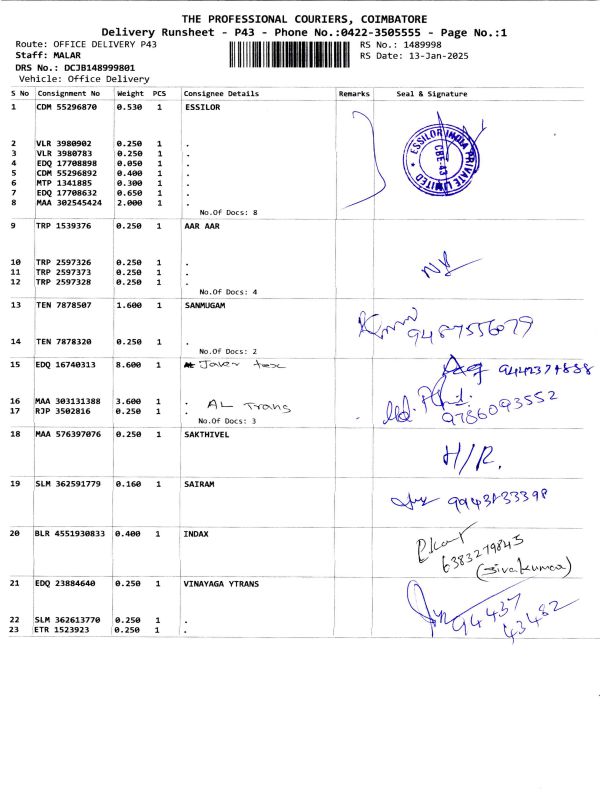 THE PROFESSIONAL COURIERS, COIMBATORE
Delivery Runsheet - P43 - Phone No.:0422-3505555 - Page No.:1
Route: OFFICE DELIVERY P43 RS No.: 1489998
Staff: MALAR RS Date: 13-Jan-2025
DRS No.: DCJB148999801
Vehicle: Office Delivery
S No Consignment No Weight PCS Consignee Details Remarks Seal & Signature
1 CDM 55296870 0.530 1 ESSILOR
ESSILOR INDIA PRIVATE LIMITED * CBE-43
2 VLR 3980902 0.250 1 .
3 VLR 3980783 0.250 1 .
4 EDQ 17708898 0.050 1 .
5 CDM 55296892 0.400 1 .
6 MTP 1341885 0.300 1 .
7 EDQ 17708632 0.650 1 .
8 MAA 302545424 2.000 1 .
No.Of Docs: 8
9 TRP 1539376 0.250 1 AAR AAR
10 TRP 2597326 0.250 1 .
11 TRP 2597373 0.250 1 .
12 TRP 2597328 0.250 1 .
No.Of Docs: 4
13 TEN 7878507 1.600 1 SANMUGAM
9487556079
14 TEN 7878320 0.250 1 .
No.Of Docs: 2
15 EDQ 16740313 8.600 1 Javer tex
16 MAA 303131388 3.600 1 . AL Trans
9786093552
17 RJP 3502816 0.250 1 .
No.Of Docs: 3
18 MAA 576397076 0.250 1 SAKTHIVEL
H/R.
19 SLM 362591779 0.160 1 SAIRAM
20 BLR 4551930833 0.400 1 INDAX
6383279845
(Sivakumar)
21 EDQ 23884640 0.250 1 VINAYAGA YTRANS
94437
43482
22 SLM 362613770 0.250 1 .
23 ETR 1523923 0.250 1 .